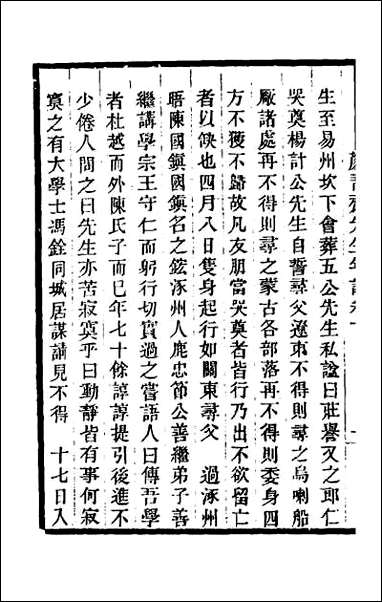 顏習齋先生年譜卷
生至易州坎下會葬五公先生私諡曰莊譽又之郎仁
哭奠楊計公先生自誓尋父遼東不得則尋之烏喇船
廠諸處再不得則尋之蒙古各部落再不得則委身四
方不獲不歸故凡友朋當哭奠者皆行乃出不欲留亡
者以缺也四月八日隻身起行如關東尋父　過涿州
晤陳國鎮國鎮名之鋐涿州人鹿忠節公善繼弟子善
繼講學宗王守仁而躬行切實過之嘗語人曰傳吾學
者杜越而外陳氏子而已年七十餘諄諄提引後進不
少倦人問之曰先生亦苦寂寞乎曰動靜皆有事何寂
寞之有大學士馮銓同城居謀請見不得　十七日入